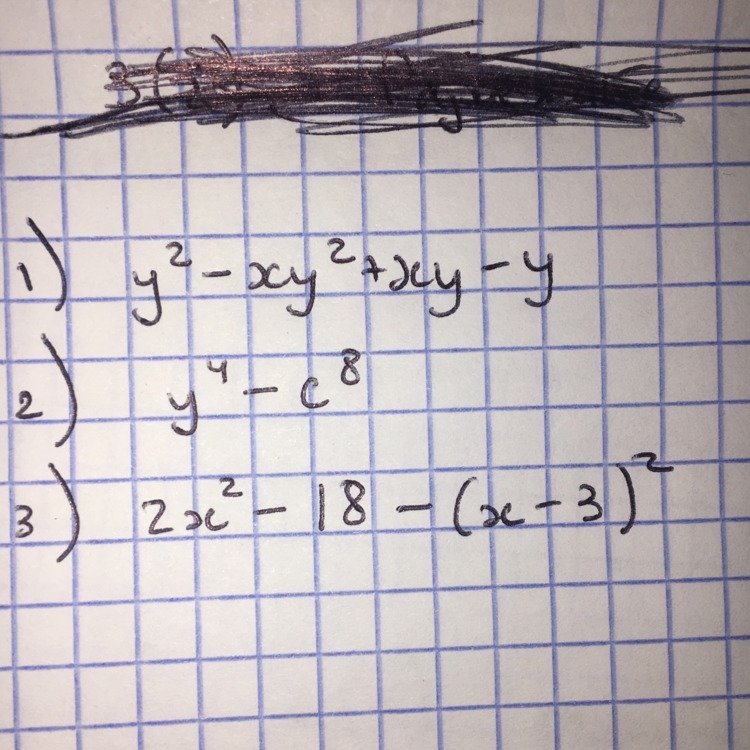 1) y² - xy² + xy - y
2) y⁴ - c⁸
3) 2x² - 18 - (x - 3)²